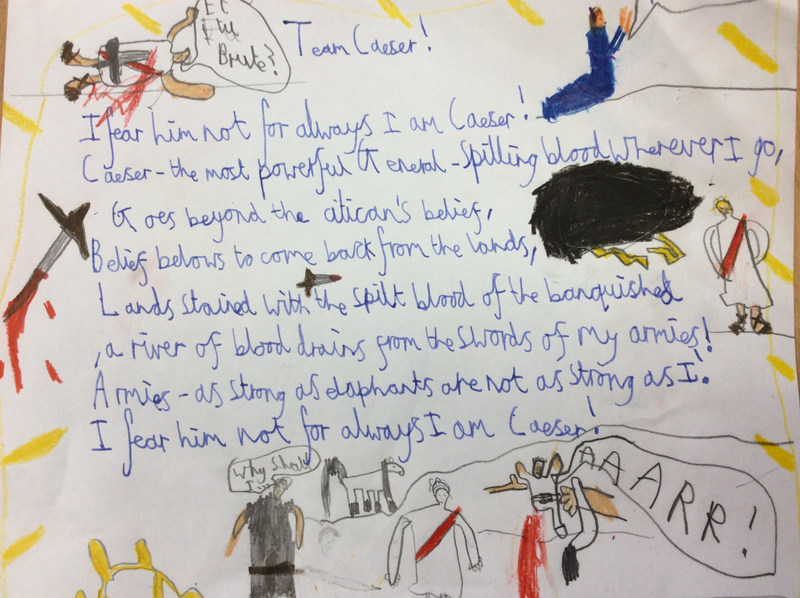 Et
tu
Brute?
Team Caeser!
I fear him not for always I am Caeser!
Caeser - the most powerful General - Spilling blood wherever I go,
Goes beyond the citican's belief,
Belief belows to come back from the lands,
Lands stained with the spilt blood of the banquished
, a river of blood drains from the swords of my armies!
Armies - as strong as elaphants are not as strong as I!
I fear him not for always I am Caeser!
Why Should
I
AAAARR!